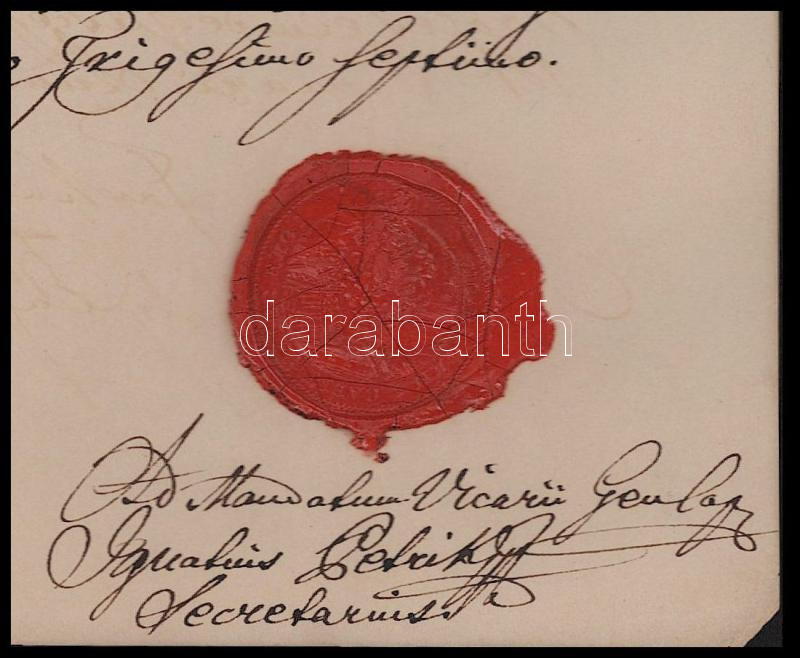 o Trigesimo Septimo.
darabanth
Ad Mandatum Vicarii Gen Cap
Ignatius Petrik
Secretarius.